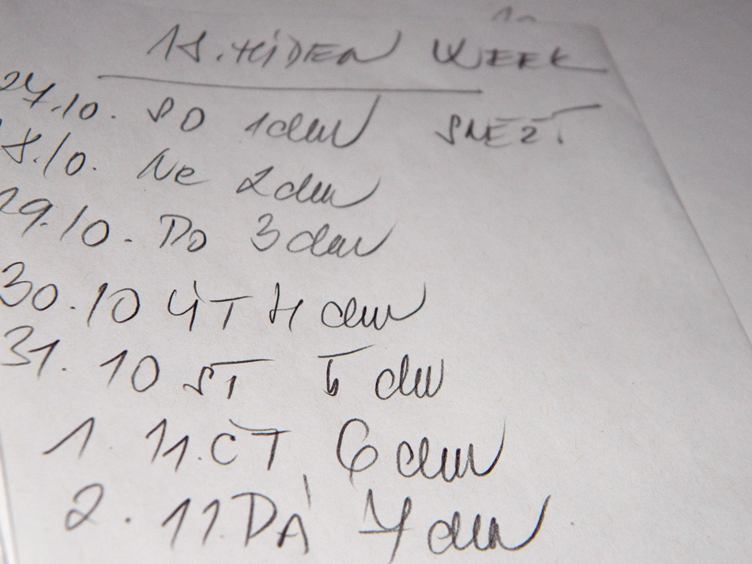 18. TÝDEN WEEK
27.10. SO 1den SNEZT
28.10. Ne 2den
29.10. Po 3den
30.10 ÚT 4 den
31. 10 ST 5 den
1. 11. ČT 6 den
2. 11. PÁ 7 den